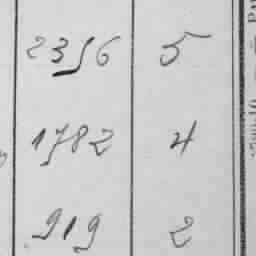 2356 5
1782 4
919 2